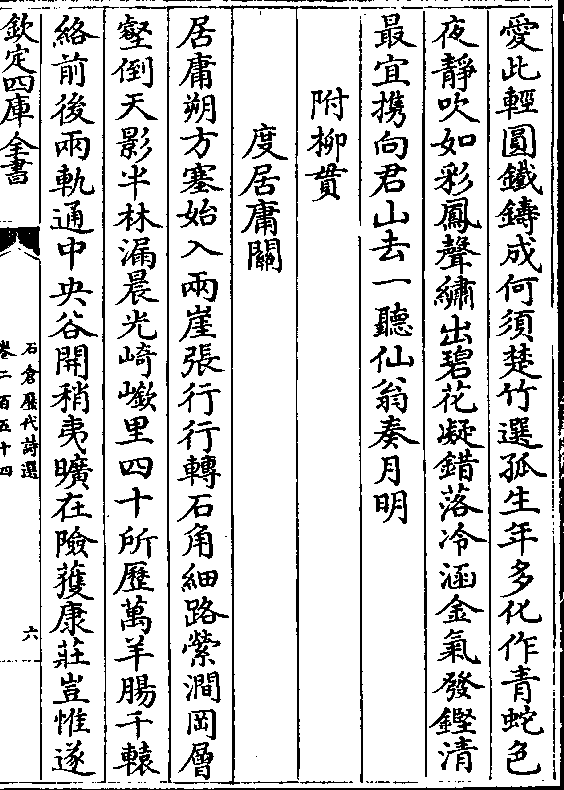 愛此輕圓鐵鑄成何須楚竹選孤生年多化作青蛇色
夜靜吹如彩鳳聲繡出碧花凝錯落冷涵金氣發鏗清
最宜携向君山去一聽仙翁奏月明
附柳貫
度居庸關
居庸朔方塞始入兩崖張行行轉石角細路縈澗岡層
壑倒天影半林漏晨光崎嶔里四十所歷萬羊腸千轅
絡前後兩軌通中央谷開稍夷曠在險蒦康莊豈惟遂
欽定四庫全書
石倉歷代詩選
卷二百五十四
六